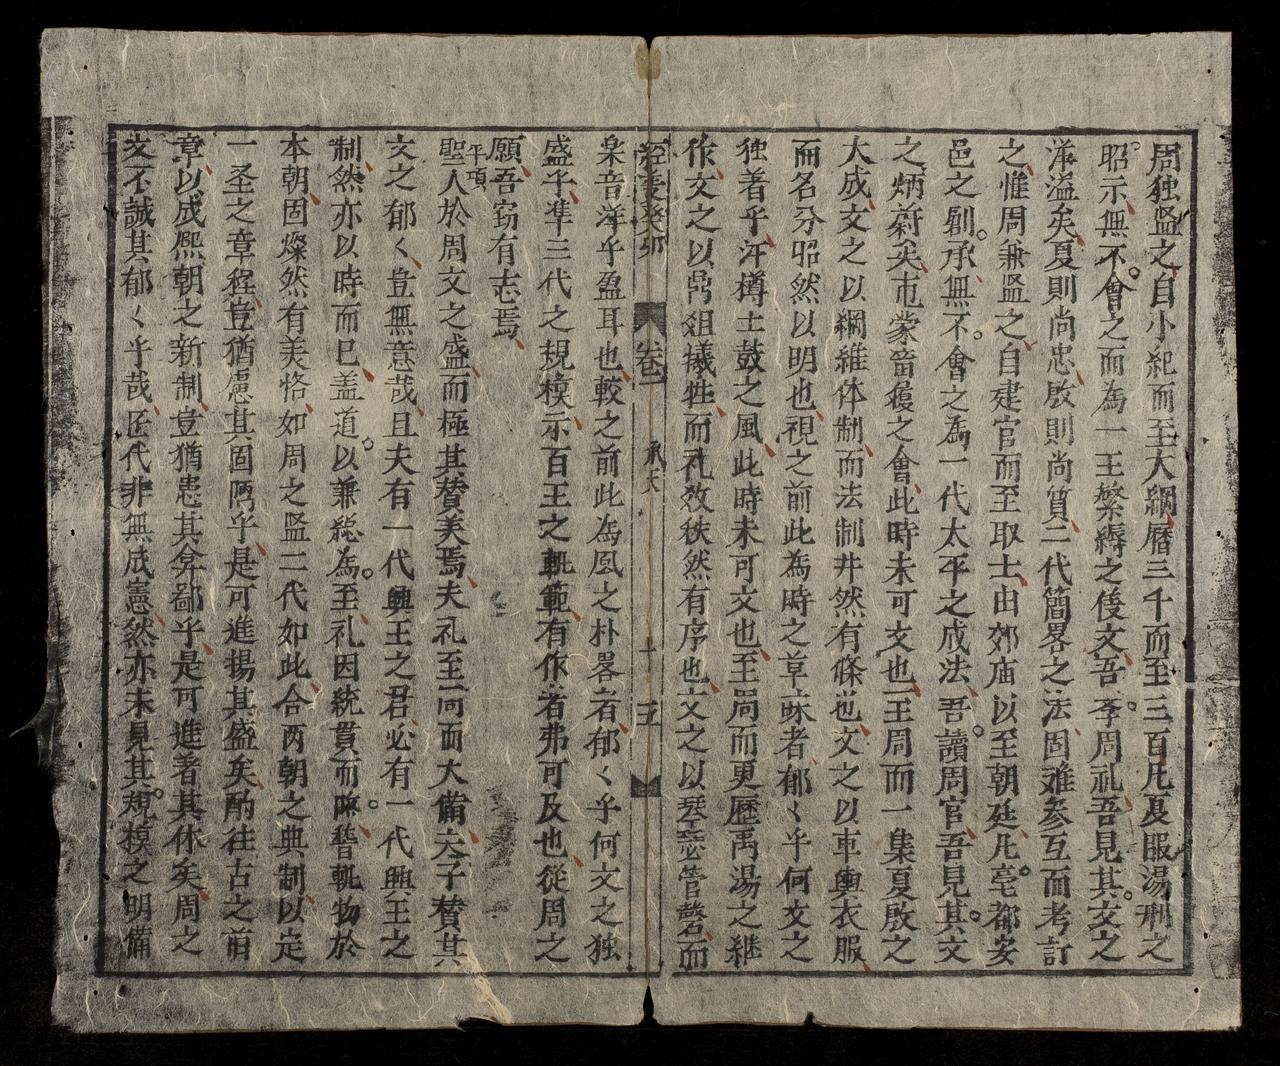 周独监之自小紀而至大綱曆三千而至三百凡夏服湯刑之
昭示無不會之而為一王繁縟之後文吾李周礼吾見其文之
洋溢矣夏則尚忠啟則尚質二代簡畧之法固难参互而考訂
之惟周兼监之自建官而至取士由郊庙以至朝廷凡亳都安
邑之承無不會之為一代太平之成法吾讀周官吾見其文
之炳蔚矣市蒙畜之會此時未可文也王周而一集夏啟之
大成文之以綱維体制而法制井然有條也文之以車輿衣服
而名分昭然以明也視之前此為時之草昧者郁〻乎何文之
独着乎汗樽土鼓之風此時未可文也至周而更歷禹湯之継
作文之以鼎俎犧牲而礼效秩然有序也文之以琴瑟管磬而
經義癸卯 卷一 承天 十五
泉音洋乎盈耳也較之前此為風之朴畧者郁〻乎何文之独
盛乎準三代之規模示百王之軌範有作者弗可及也從周之
願吾窃有志焉
平項
聖人於周文之盛而極其賛美焉夫礼至周而大備夫子賛其
文之郁〻豈無意哉且夫有一代興王之君必有一代興王之
制然亦以時而已盖道以兼総為至礼因統貫而昭昔軌物於
本朝固燦然有美恪如周之监二代如此合两朝之典制以定
一圣之章程豈猶慮其固陋乎是可進揚其盛矣酌往古之前
章以成熙朝之新制豈猶患其弇鄙乎是可進著其休矣周之
文不誠其郁〻乎哉匠代非無成憲然亦未見其規模之明備